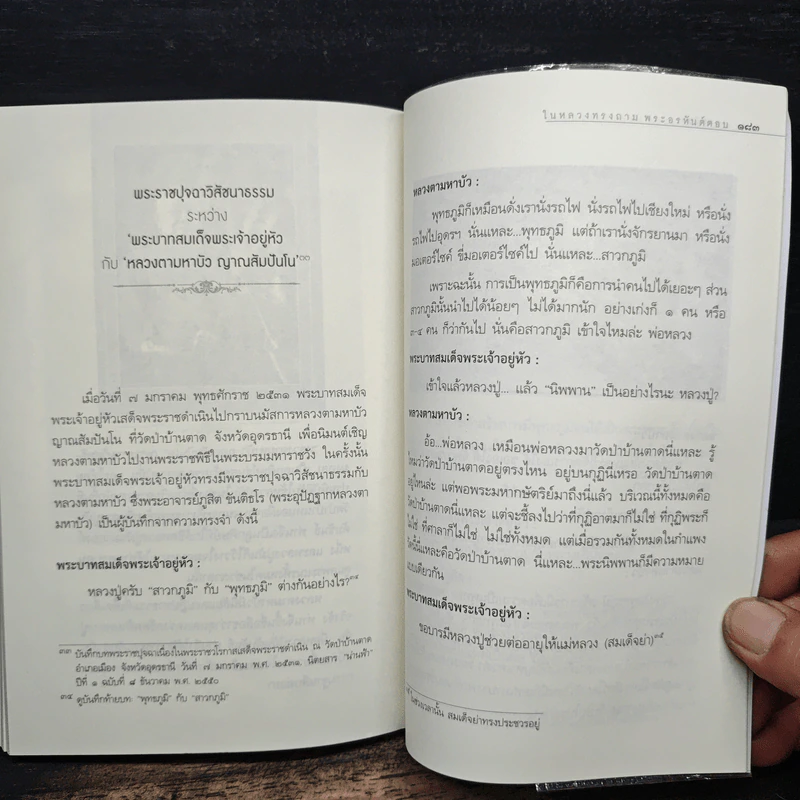 พระราชปุจฉาวิสัชนาธรรม
ระหว่าง
‘พระบาทสมเด็จพระเจ้าอยู่หัว
กับ ‘หลวงตามหาบัว ญาณสัมปันโน’๓๓
เมื่อวันที่ ๗ มกราคม พุทธศักราช ๒๕๓๑ พระบาทสมเด็จ
พระเจ้าอยู่หัวเสด็จพระราชดำเนินไปกราบนมัสการหลวงตามหาบัว
ญาณสัมปันโน ที่วัดป่าบ้านตาด จังหวัดอุดรธานี เพื่อนิมนต์เชิญ
หลวงตามหาบัวไปงานพระราชพิธีในพระบรมมหาราชวัง ในครั้งนั้น
พระบาทสมเด็จพระเจ้าอยู่หัวทรงมีพระราชปุจฉาวิสัชนาธรรมกับ
หลวงตามหาบัว ซึ่งพระอาจารย์ภูสิต ขันติธโร (พระอุปัฏฐากหลวงตา
มหาบัว) เป็นผู้บันทึกจากความทรงจำ ดังนี้
พระบาทสมเด็จพระเจ้าอยู่หัว :
หลวงปู่ครับ “สาวกภูมิ” กับ “พุทธภูมิ” ต่างกันอย่างไร?๓๔
๓๓ บันทึกบทพระราชปุจฉาเนื่องในพระราชวโรกาสเสด็จพระราชดำเนิน ณ วัดป่าบ้านตาด
อำเภอเมือง จังหวัดอุดรธานี วันที่ ๗ มกราคม พ.ศ. ๒๕๓๑. นิตยสาร “น่านฟ้า”
ปีที่ ๑ ฉบับที่ ๘ ธันวาคม พ.ศ. ๒๕๕๐
๓๔ ดูบันทึกท้ายบท “พุทธภูมิ” กับ “สาวกภูมิ”
ในหลวงทรงถาม พระอรหันต์ตอบ ๑๘๓
หลวงตามหาบัว :
พุทธภูมิก็เหมือนดั่งเรานั่งรถไฟ นั่งรถไฟไปเชียงใหม่ หรือนั่ง
รถไฟไปอุดรฯ นั่นแหละ...พุทธภูมิ แต่ถ้าเรานั่งจักรยานมา หรือนั่ง
มอเตอร์ไซค์ ขี่มอเตอร์ไซค์ไป นั่นแหละ...สาวกภูมิ
เพราะฉะนั้น การเป็นพุทธภูมิก็คือการนำคนไปได้เยอะๆ ส่วน
สาวกภูมินั้นนำไปได้น้อยๆ ไม่ได้มากนัก อย่างเก่งก็ ๑ คน หรือ
๓-๔ คน ก็ว่ากันไป นั่นคือสาวกภูมิ เข้าใจไหมล่ะ พ่อหลวง
พระบาทสมเด็จพระเจ้าอยู่หัว :
เข้าใจแล้วหลวงปู่... แล้ว “นิพพาน” เป็นอย่างไรนะ หลวงปู่?
หลวงตามหาบัว :
อ้อ...พ่อหลวง เหมือนพ่อหลวงมาวัดป่าบ้านตาดนี่แหละ รู้
ไหมว่าวัดป่าบ้านตาดอยู่ตรงไหน อยู่บนกุฏินี่เหรอ วัดป่าบ้านตาด
อยู่ไหนล่ะ แต่พอพระมหากษัตริย์มาถึงนี่แล้ว บริเวณนี้ทั้งหมดคือ
วัดป่าบ้านตาดนี่แหละ แต่จะชี้ลงไปว่าที่กุฏิอาตมาก็ไม่ใช่ ที่กุฏิพระก็
ไม่ใช่ ที่ศาลาก็ไม่ใช่ ไม่ใช่ทั้งหมด แต่เมื่อรวมกันทั้งหมดในกำแพง
วัดนี่นี่แหละคือวัดป่าบ้านตาด นี่แหละ...พระนิพพานก็มีความหมาย
แบบเดียวกัน
พระบาทสมเด็จพระเจ้าอยู่หัว :
ขอบารมีหลวงปู่ช่วยต่ออายุให้แม่หลวง (สมเด็จย่า)๓๕
ในช่วงเวลานั้น สมเด็จย่าทรงประชวรอยู่